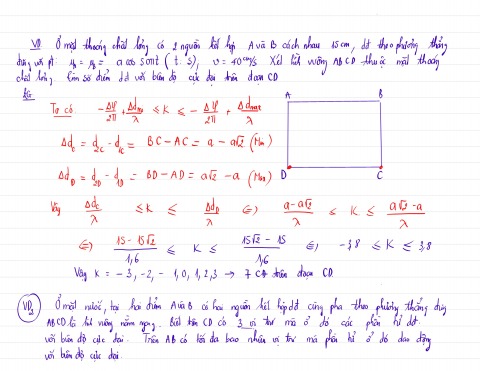 VD. Ở mặt thoáng chất lỏng có 2 nguồn kết hợp A và B cách nhau 15cm, dđ theo phương thẳng
đứng với pt: u_A = u_B = a cos 50πt (t: s), v = 40 cm/s Xét hình vuông ABCD thuộc mặt thoáng
chất lỏng tìm số điểm dđ với biên độ cực đại trên đoạn CD.
Ta có -Δφ/2π + Δd_min/λ ≤ K ≤ -Δφ/2π + Δd_max/λ
A B
Δd_C = d_2C - d_1C = BC - AC = a - a√2 (Min)
Δd_D = d_2D - d_1D = BD - AD = a√2 - a (Max)
D C
Vậy Δd_C/λ ≤ K ≤ Δd_D/λ ⇔ (a - a√2)/λ ≤ K ≤ (a√2 - a)/λ
⇔ (15 - 15√2)/1,6 ≤ K ≤ (15√2 - 15)/1,6 ⇔ -3,8 ≤ K ≤ 3,8
Vậy K = -3, -2, -1, 0, 1, 2, 3 → 7 CĐ trên đoạn CD
VD2 Ở mặt nước, tại hai điểm A và B có hai nguồn kết hợp dđ cùng pha theo phương thẳng đứng
ABCD là hình vuông nằm ngang. Biết trên CD có 3 vị trí mà ở đó các phần tử dđ
với biên độ cực đại. Trên AB có tối đa bao nhiêu vị trí mà phần tử ở đó dao động
với biên độ cực đại.